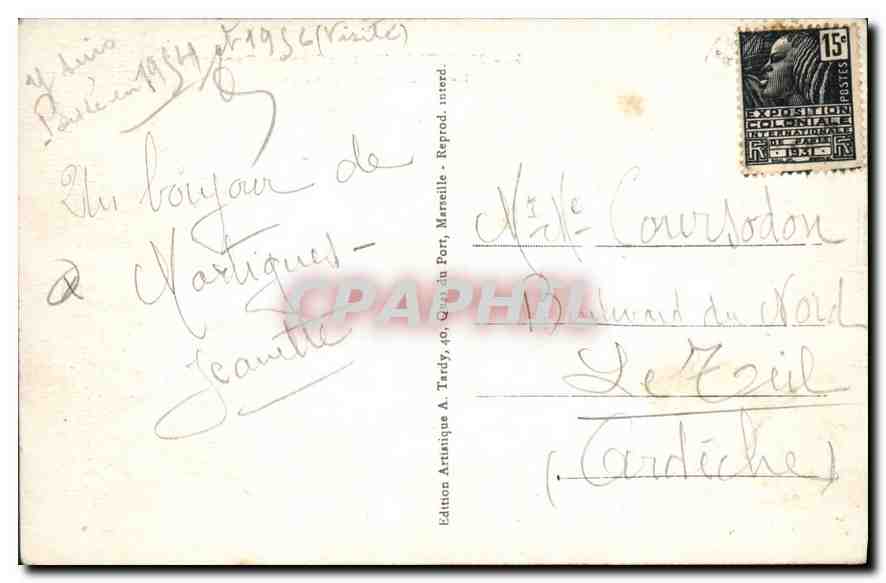 y suis
Passée en 1954 et 1956 (Visité)
Un bonjour de
Martigues -
Jeanette
Edition Artistique A. Tardy, 40, Quai du Port, Marseille - Reprod. interd.
15c
POSTES
EXPOSITION
COLONIALE
INTERNATIONALE
DE PARIS
1931
Mr Me Coursodon
Boulevard du Nord
Le Teil
(Ardèche)
CPAPHIL